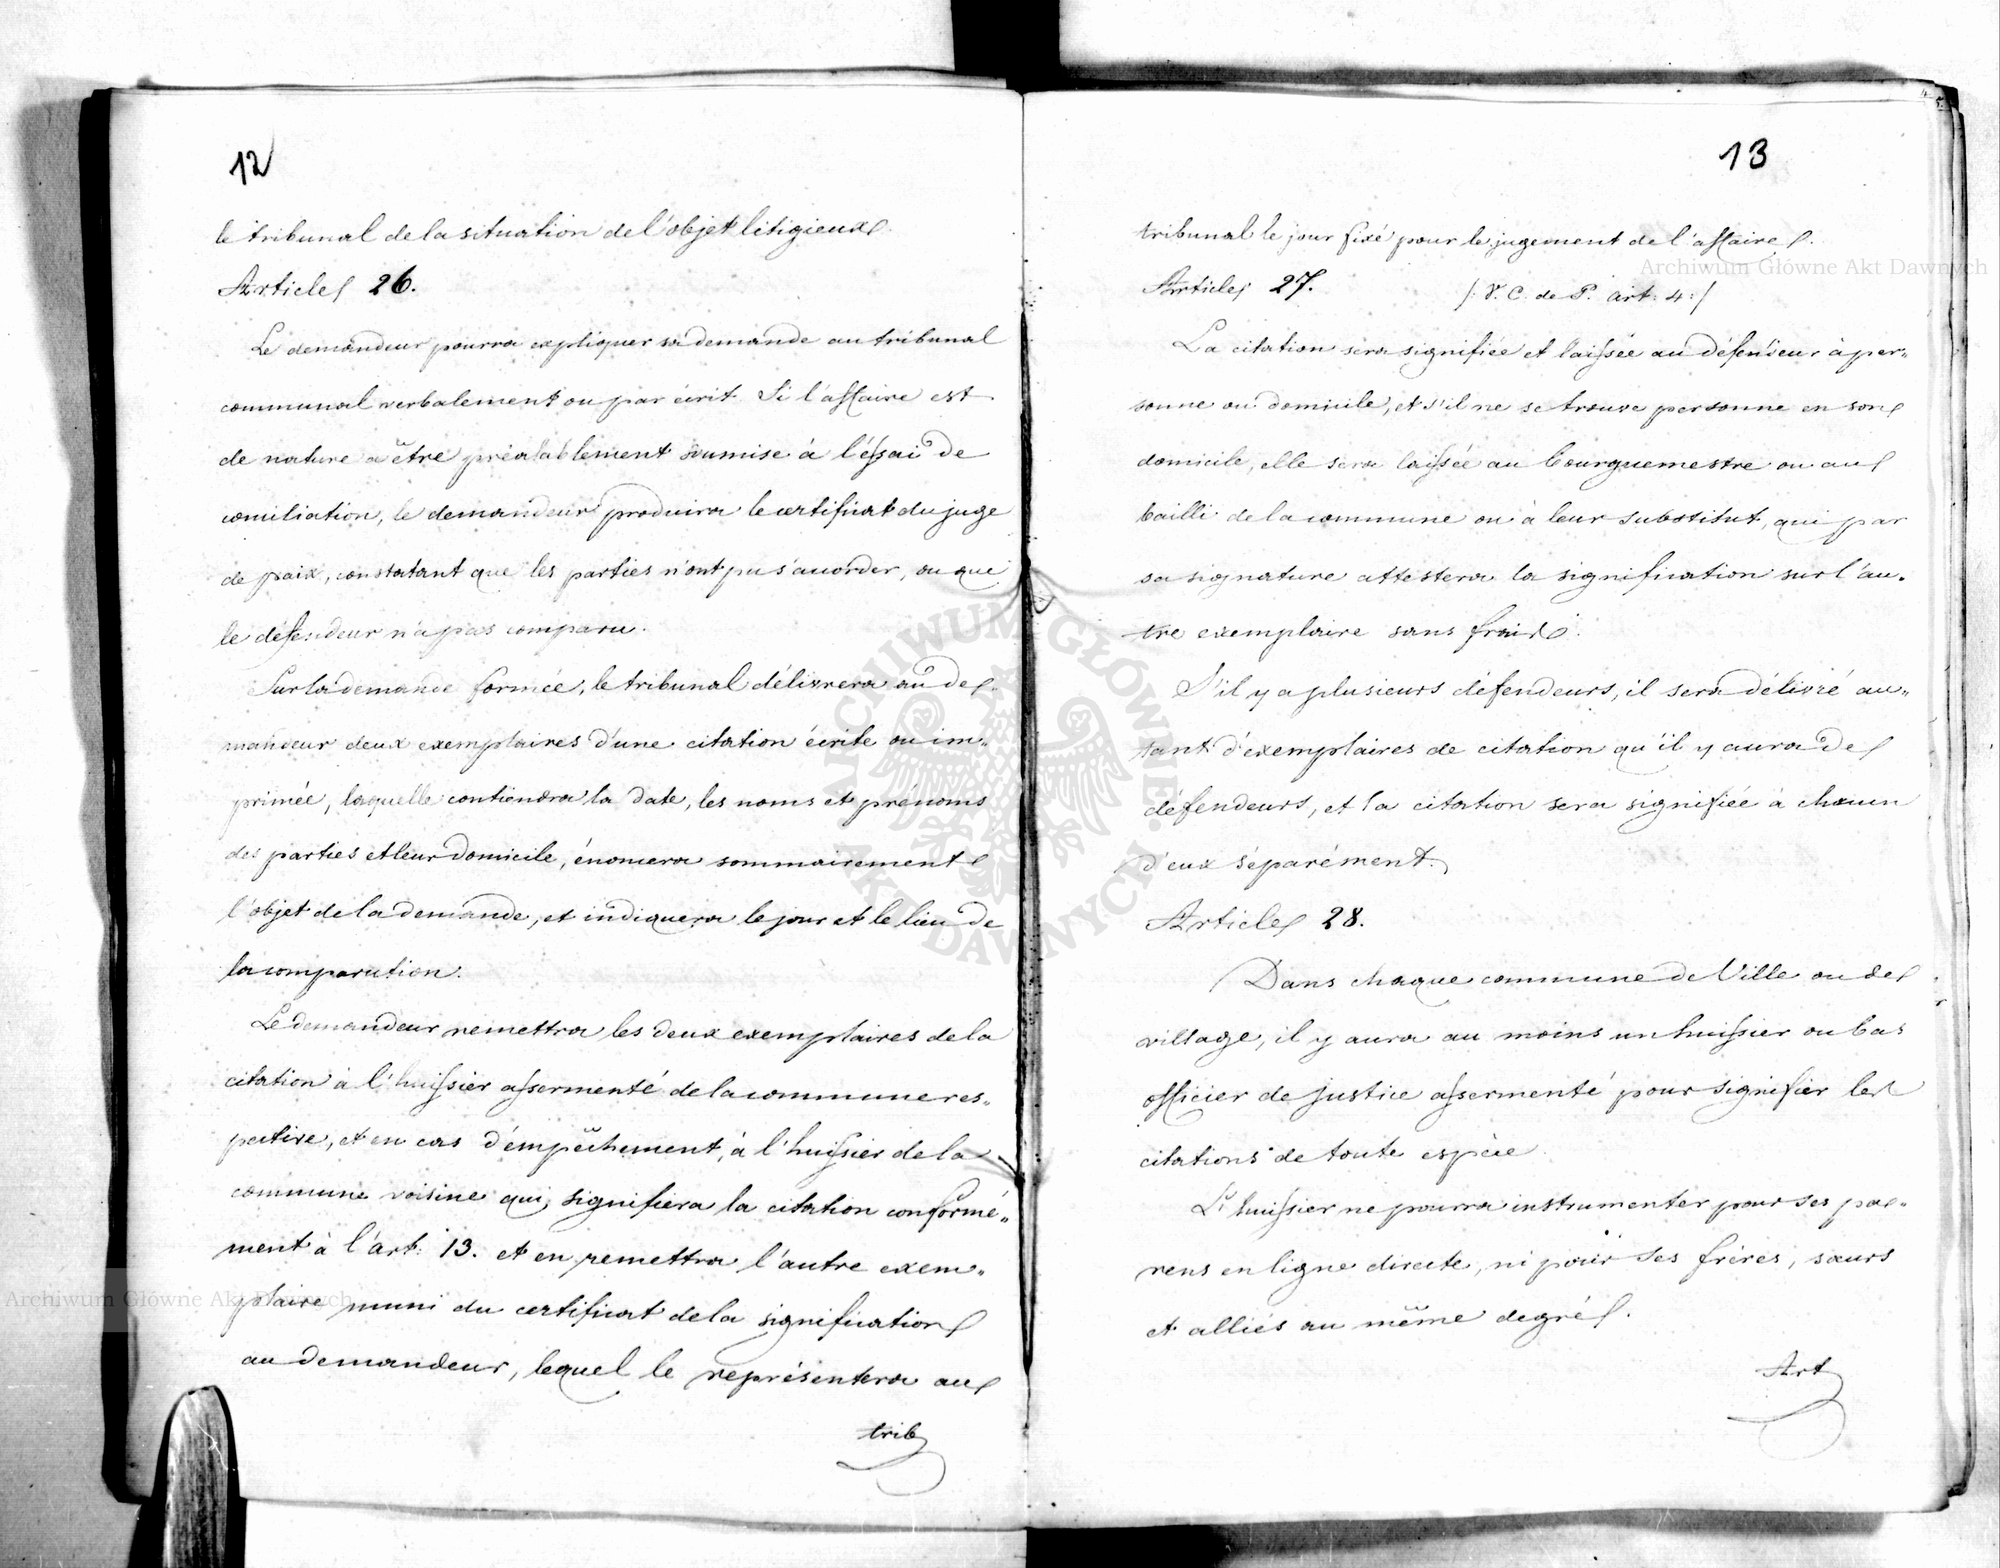 12
le tribunal de la situation de l'objet litigieux.
Article 26.
Le demandeur pourra expliquer sa demande au tribunal
communal verbalement ou par écrit. Si l'affaire est
de nature a être préalablement soumise à l'éssai de
conciliation, le demandeur produira le certificat du juge
de paix, constatant que les parties n'ont pu s'accorder, ou que
le défendeur n'a pas comparu.
Sur la demande formée, le tribunal délivrera au de-
mandeur deux exemplaires d'une citation écrite ou im-
primée, laquelle contiendra la date, les noms et prénoms
des parties et leur domicile, énoncera sommairement
l'objet de la demande, et indiquera le jour et le lieu de
la comparution.
Le demandeur remettra les deux exemplaires de la
citation à l'huissier assermenté de la commune res-
pective, et en cas d'empêchement, à l'huissier de la
commune voisine qui, signifiera la citation conformé-
ment à l'art: 13. et en remettra l'autre exem-
plaire muni du certificat de la signification
au demandeur, lequel le représentera au
trib
13
tribunal le jour fixé pour le jugement de l'affaire.
Article 27. /: V. C. de P. art: 4:/
La citation sera signifiée et laissée au défendeur à per-
sonne ou domicile, et s'il ne se trouve personne en son
domicile, elle sera laissée au bourguemestre ou au
bailli de la commune ou à leur substitut, qui par
sa signature attestera la signification sur l'au-
tre exemplaire sans frais.
S'il y a plusieurs défendeurs, il sera délivré au-
tant d'exemplaires de citation qu'il y aura de
défendeurs, et la citation sera signifiée à chacun
d'eux séparément.
Article 28.
Dans chaque commune de Ville ou de
village, il y aura au moins un huissier ou bas
officier de justice assermenté pour signifier les
citations de toute espèce.
L'huissier ne pourra instrumenter pour ses pa-
rens en ligne directe, ni pour ses frères, sœurs
et alliés au même degré.
Art
Archiwum Główne Akt Dawnych
Archiwum Główne Akt Dawnych
ARCHIWUM GŁÓWNE AKT DAWNYCH